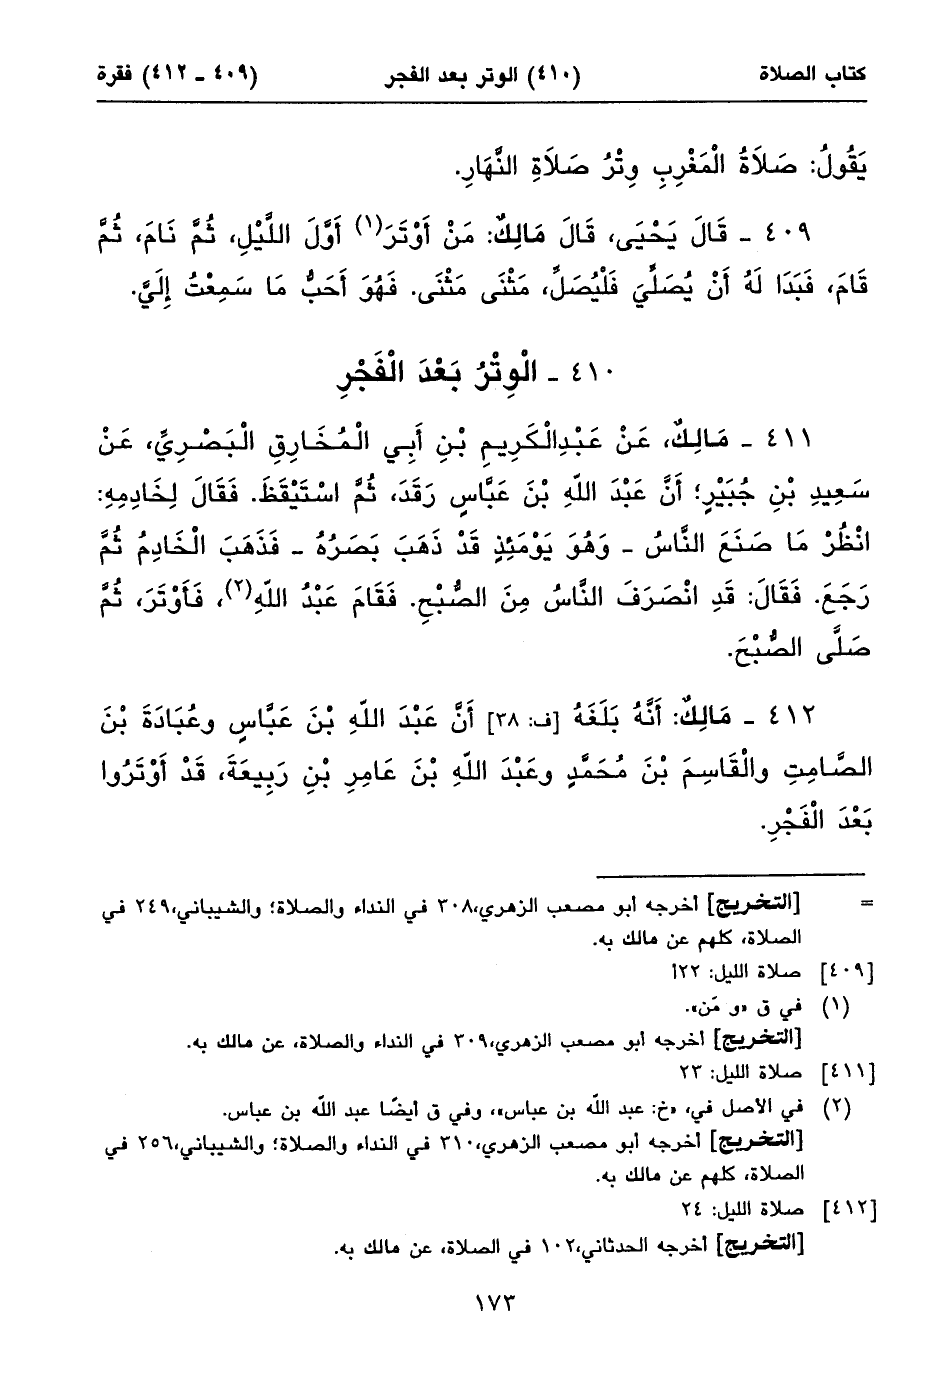 كتاب الصلاة (٤١٠) الوتر بعد الفجر (٤٠٩ ـ ٤١٢) فقرة
يَقُولُ: صَلاَةُ الْمَغْرِبِ وِتْرُ صَلاَةِ النَّهَارِ.
٤٠٩ ـ قَالَ يَحْيَى، قَالَ مَالِكٌ: مَنْ أَوْتَرَ(١) أَوَّلَ اللَّيْلِ، ثُمَّ نَامَ، ثُمَّ
قَامَ، فَبَدَا لَهُ أَنْ يُصَلِّيَ فَلْيُصَلِّ، مَثْنَى مَثْنَى. فَهُوَ أَحَبُّ مَا سَمِعْتُ إِلَيَّ.
٤١٠ ـ الْوِتْرُ بَعْدَ الْفَجْرِ
٤١١ ـ مَالِكٌ، عَنْ عَبْدِالْكَرِيمِ بْنِ أَبِي الْمُخَارِقِ الْبَصْرِيِّ، عَنْ
سَعِيدِ بْنِ جُبَيْرٍ؛ أَنَّ عَبْدَ اللهِ بْنَ عَبَّاسٍ رَقَدَ، ثُمَّ اسْتَيْقَظَ. فَقَالَ لِخَادِمِهِ:
انْظُرْ مَا صَنَعَ النَّاسُ ـ وَهُوَ يَوْمَئِذٍ قَدْ ذَهَبَ بَصَرُهُ ـ فَذَهَبَ الْخَادِمُ ثُمَّ
رَجَعَ. فَقَالَ: قَدِ انْصَرَفَ النَّاسُ مِنَ الصُّبْحِ. فَقَامَ عَبْدُ اللهِ(٢)، فَأَوْتَرَ، ثُمَّ
صَلَّى الصُّبْحَ.
٤١٢ ـ مَالِكٌ: أَنَّهُ بَلَغَهُ [ف: ٣٨] أَنَّ عَبْدَ اللهِ بْنَ عَبَّاسٍ وعُبَادَةَ بْنَ
الصَّامِتِ والْقَاسِمَ بْنَ مُحَمَّدٍ وعَبْدَ اللهِ بْنَ عَامِرِ بْنِ رَبِيعَةَ، قَدْ أَوْتَرُوا
بَعْدَ الْفَجْرِ.
= [التخريج] أخرجه أبو مصعب الزهري،٣٠٨ في النداء والصلاة؛ والشيباني،٢٤٩ في
الصلاة، كلهم عن مالك به.
[٤٠٩] صلاة الليل: ٢٢أ
(١) في ق «و مَن».
[التخريج] أخرجه أبو مصعب الزهري،٣٠٩ في النداء والصلاة، عن مالك به.
[٤١١] صلاة الليل: ٢٣
(٢) في الأصل في، «خ: عبد الله بن عباس»، وفي ق أيضًا عبد الله بن عباس.
[التخريج] أخرجه أبو مصعب الزهري،٣١٠ في النداء والصلاة؛ والشيباني،٢٥٦ في
الصلاة، كلهم عن مالك به.
[٤١٢] صلاة الليل: ٢٤
[التخريج] أخرجه الحدثاني،١٠٢ في الصلاة، عن مالك به.
١٧٣